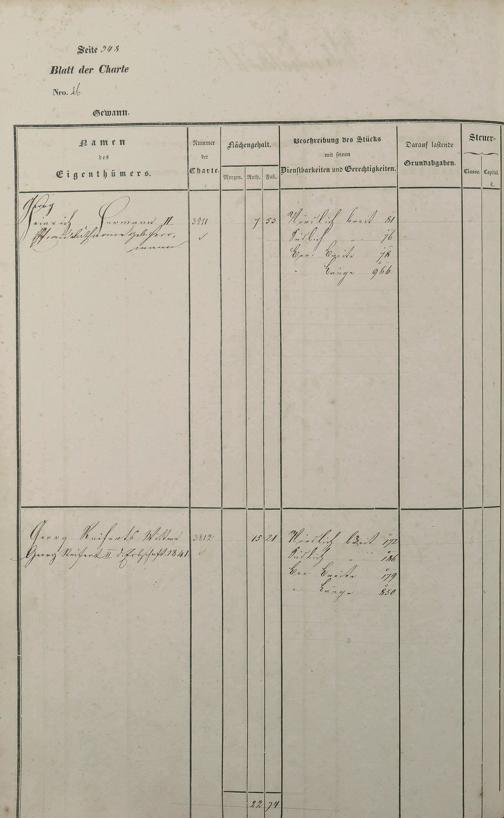 Seite 348
Blatt der Charte
Nro. 26
Gewann.
Namen des Eigenthümers.
Nummer der Charte.
Flächengehalt.
Morgen. Ruth. Fuß.
Beschreibung des Stücks mit seinen Dienstbarkeiten und Gerechtigkeiten.
Darauf lastende Grundabgaben.
Steuer-
Classe. Capital.
Georg
Heinrich Hermann II. 3811 7 53 Nördlich breit 81
Südlich „ 76
Ger Breite 78
„ Länge 966
Georg Seiferts Wittwe 3812 15 21 Nördlich breit 172
Georg Seifert II 1841 Südlich „ 186
Ger Breite 179
„ Länge 850
22 74